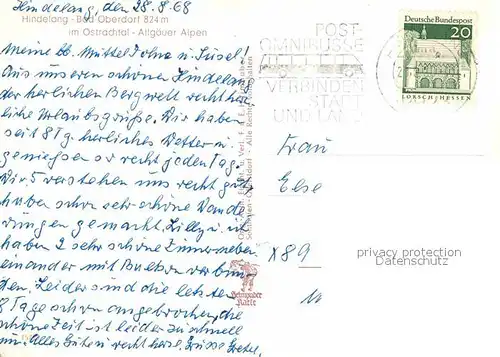 Hindelang, den 28.8.68
Hindelang - Bad Oberdorf 824 m
im Ostrachtal - Allgäuer Alpen
Meine lb. Muttel u. Susel!
Aus unserem schönen Hindelang
der herlichen Bergwelt recht herz
liche Urlaubsgrüße. Wir haben
seit 8 Tg. herliches Wetter u.
genießen so recht jeden Tag.
Wir 5 verstehen uns recht gut,
haben schon sehr schöne Wande
rungen gemacht. Lilly u. ich
haben 2 sehr schöne Zimmer neben
einander mit Balkon verbun
den. Leider sind die letzten
8 Tage schon angebrochen, die
schöne Zeit ist leider zu schnell
um. Alles Gute u. recht herzl. Grüße Gretel,
POST-
OMNIBUSSE
VERBINDEN
STADT
UND LAND
Deutsche Bundespost
20
LORSCH/HESSEN
Frau
Else
x89
privacy protection
Datenschutz